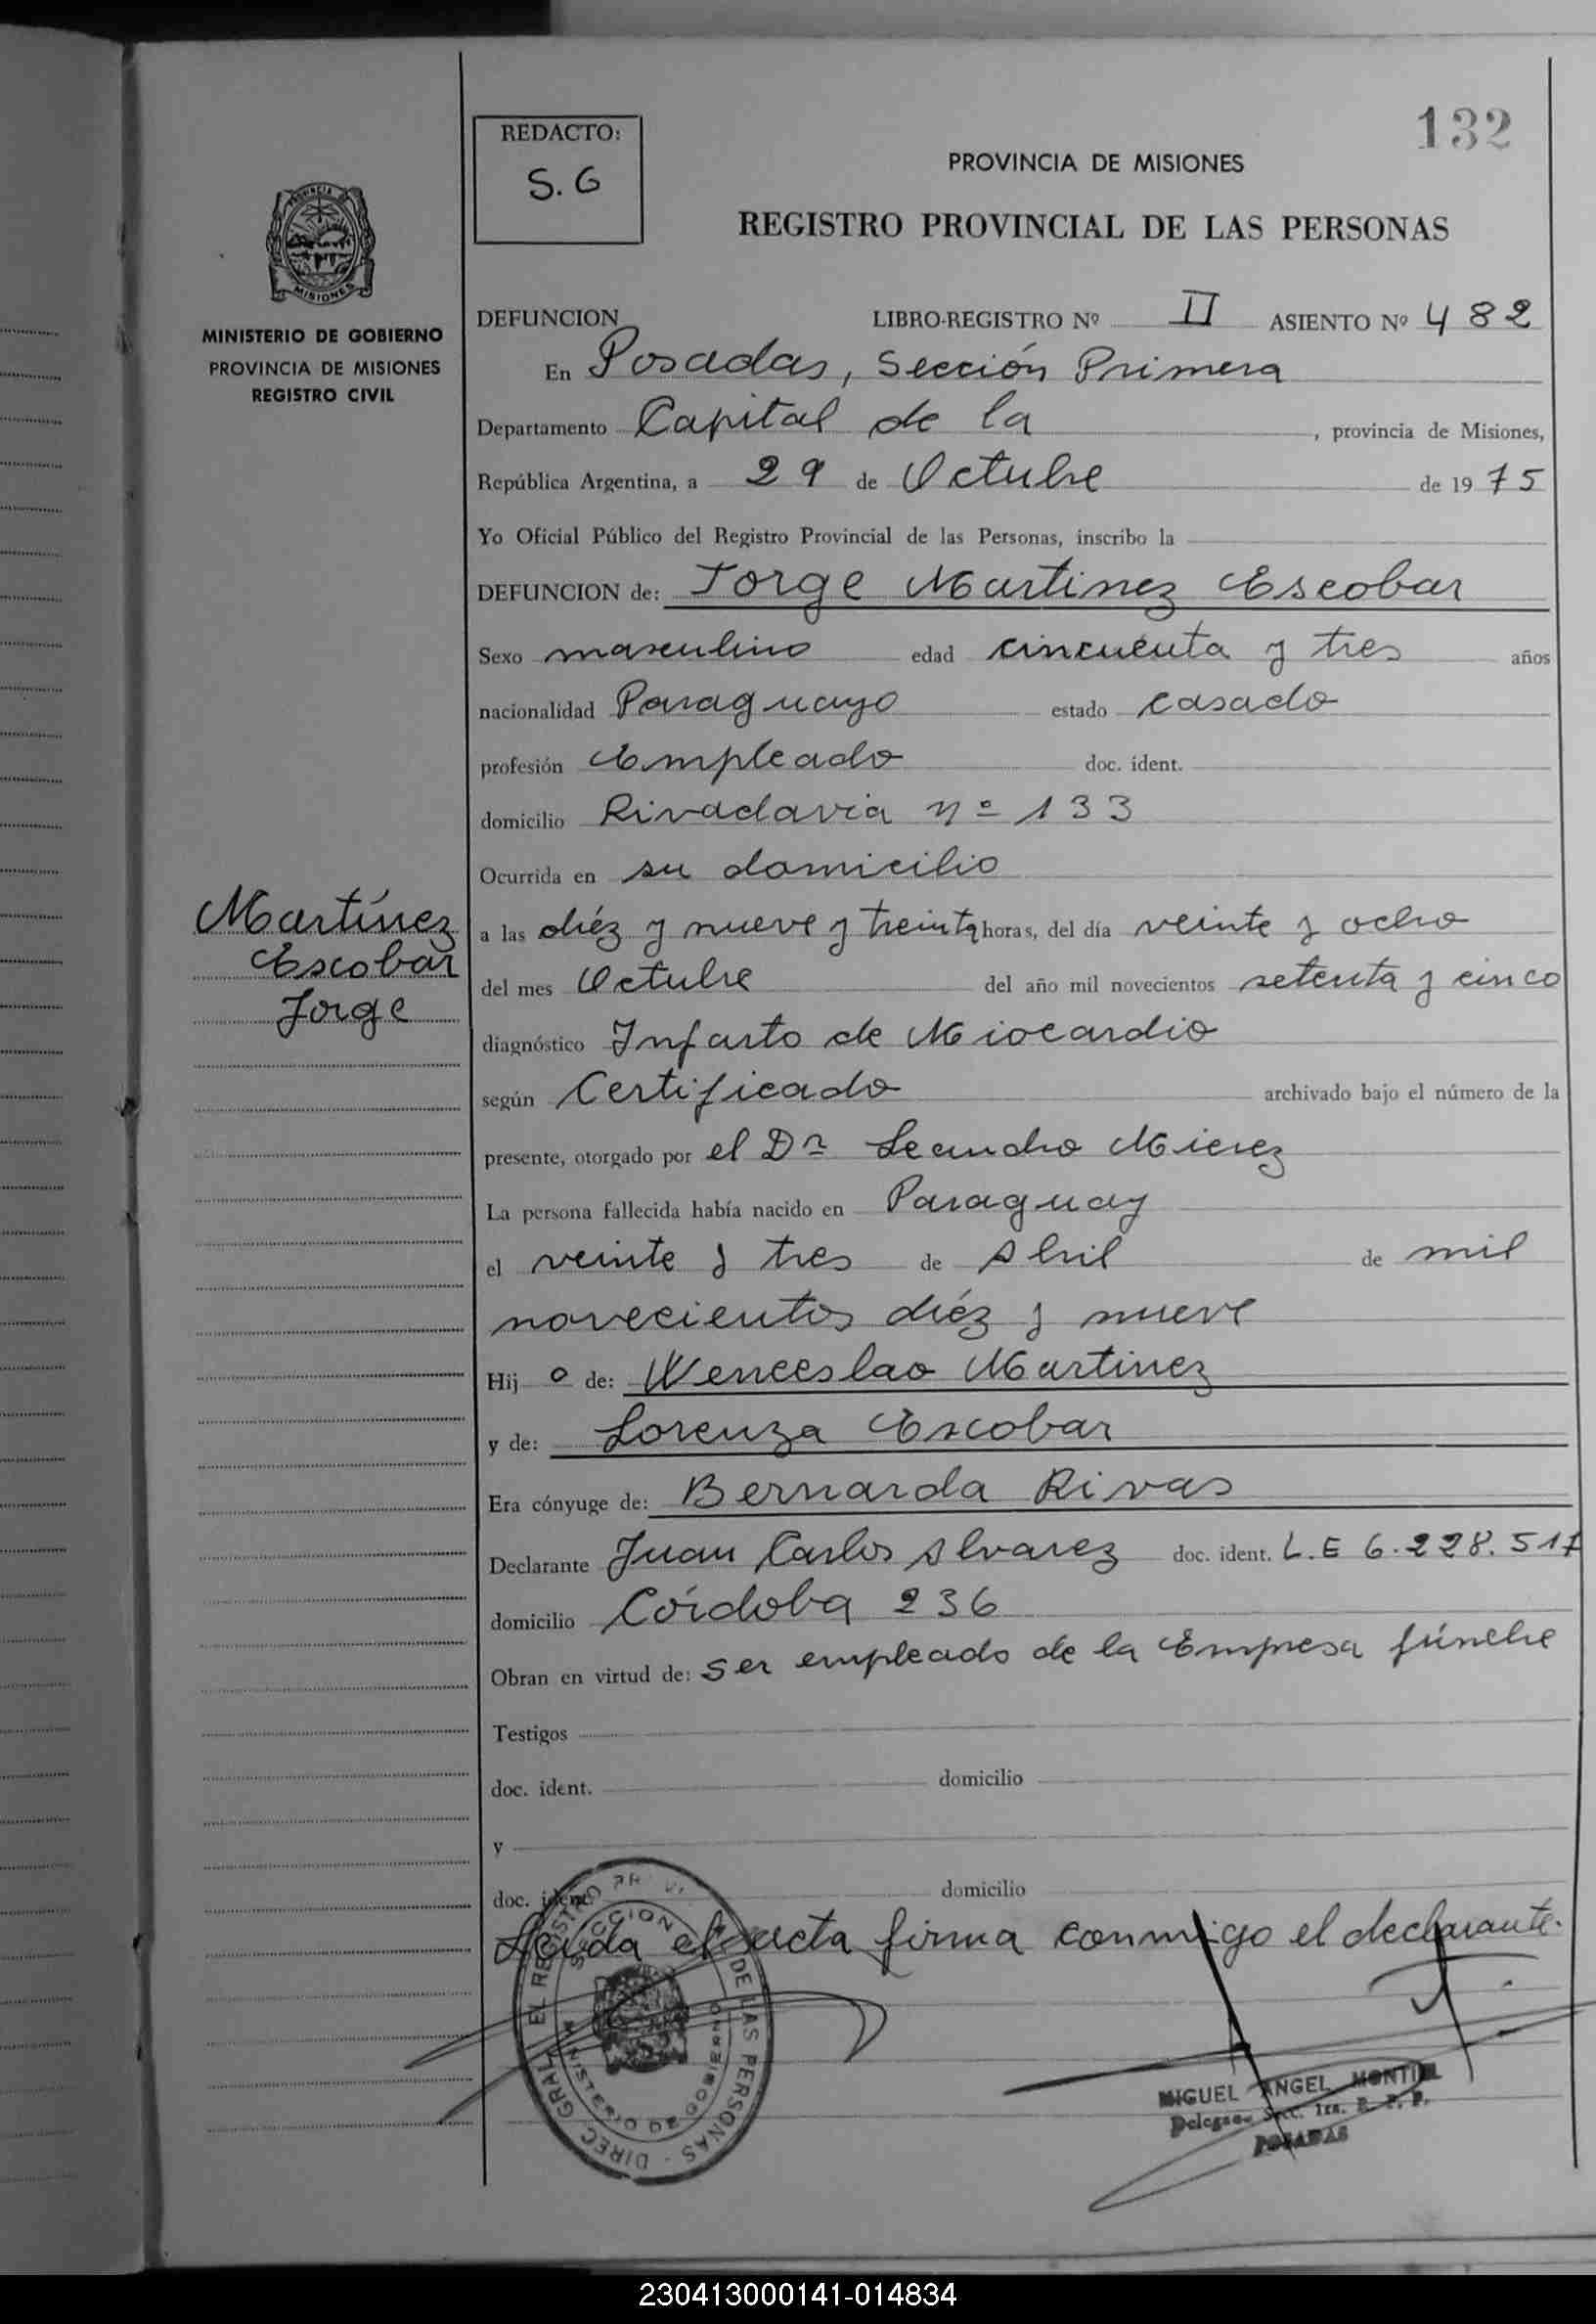 132
REDACTO:
S. G
PROVINCIA DE MISIONES
REGISTRO PROVINCIAL DE LAS PERSONAS
MISIONES
MINISTERIO DE GOBIERNO
PROVINCIA DE MISIONES
REGISTRO CIVIL
DEFUNCION LIBRO-REGISTRO Nº II ASIENTO Nº 482
En Posadas, Sección Primera
Departamento Capital de la , provincia de Misiones,
República Argentina, a 29 de Octubre de 1975
Yo Oficial Público del Registro Provincial de las Personas, inscribo la
DEFUNCION de: Jorge Martinez Escobar
Sexo masculino edad cincuenta y tres años
nacionalidad Paraguayo estado casado
profesión Empleado doc. ident.
domicilio Rivadavia nº 133
Ocurrida en su domicilio
Martínez
Escobar
Jorge
a las diéz y nueve y treinta horas, del día veinte y ocho
del mes Octubre del año mil novecientos setenta y cinco
diagnóstico Infarto de Miocardio
según Certificado archivado bajo el número de la
presente, otorgado por el Dr Leandro Mierez
La persona fallecida había nacido en Paraguay
el veinte y tres de Abril de mil
novecientos diéz y nueve
Hij o de: Wenceslao Martinez
y de: Lorenza Escobar
Era cónyuge de: Bernarda Rivas
Declarante Juan Carlos Alvarez doc. ident. L.E 6.228.517
domicilio Córdoba 236
Obran en virtud de: ser empleado de la Empresa fúnebre
Testigos
doc. ident. domicilio
y
doc. ident. domicilio
Leida el acta firma conmigo el declarante.
DIREC. GRAL. EL REGISTRO DE LAS PERSONAS
SECCION
MINISTERIO DE GOBIERNO
MIGUEL ANGEL MONTIEL
Delegado Secc. 1ra. R. P. P.
POSADAS
230413000141-014834